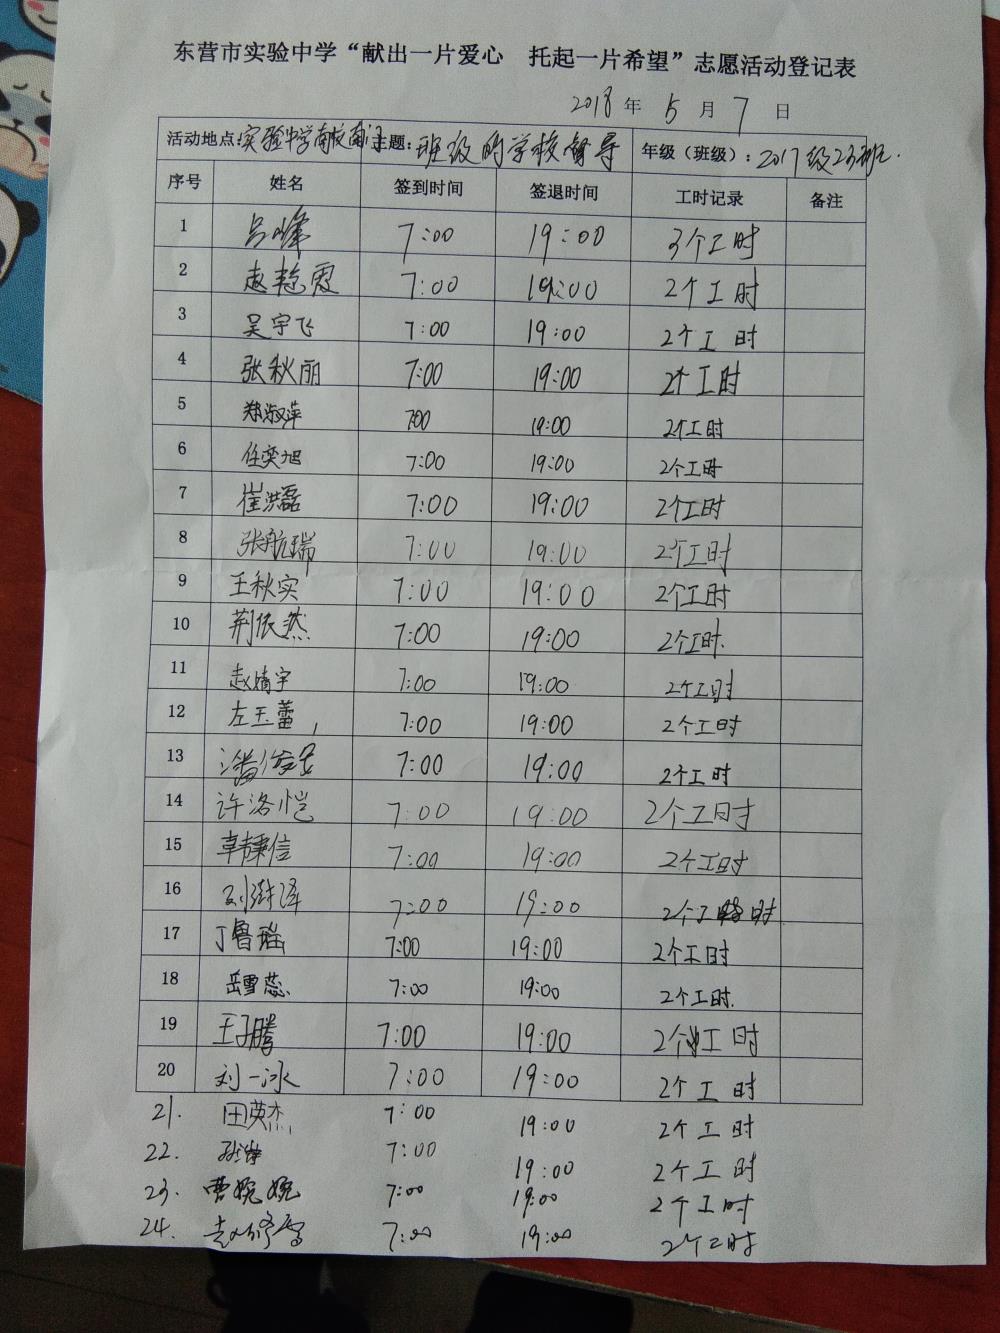 东营市实验中学“献出一片爱心 托起一片希望”志愿活动登记表
2018年 5月 7日
活动地点:实验中学南校南门 主题:班级的学校督导 年级(班级):2017级23班.
序号 姓名 签到时间 签退时间 工时记录 备注
1 吕峰 7:00 19:00 3个工时
2 赵艳霞 7:00 19:00 2个工时
3 吴宇飞 7:00 19:00 2个工时
4 张秋丽 7:00 19:00 2个工时
5 郑淑萍 700 19:00 2个工时
6 任奕旭 7:00 19:00 2个工时
7 崔洪磊 7:00 19:00 2个工时
8 张航瑞 7:00 19:00 2个工时
9 王秋实 7:00 19:00 2个工时
10 荆依然 7:00 19:00 2个工时.
11 赵婧宇 7:00 19:00 2个工时
12 左玉蕾, 7:00 19:00 2个工时
13 潘俊 7:00 19:00 2个工时
14 许洛恺 7:00 19:00 2个工时
15 信 7:00 19:00 2个工时
16 刘泽 7:00 19:00 2个工时
17 丁鲁瑶 7:00 19:00 2个工时
18 岳雪蕊. 7:00 19:00 2个工时.
19 王子腾 7:00 19:00 2个工时
20 刘一冰 7:00 19:00 2个工时
21. 田英杰 7:00 19:00 2个工时
22. 孙 7:00 19:00 2个工时
23. 曹婉婉 7:00 19:00 2个工时
24. 赵修 7:00 19:00 2个工时